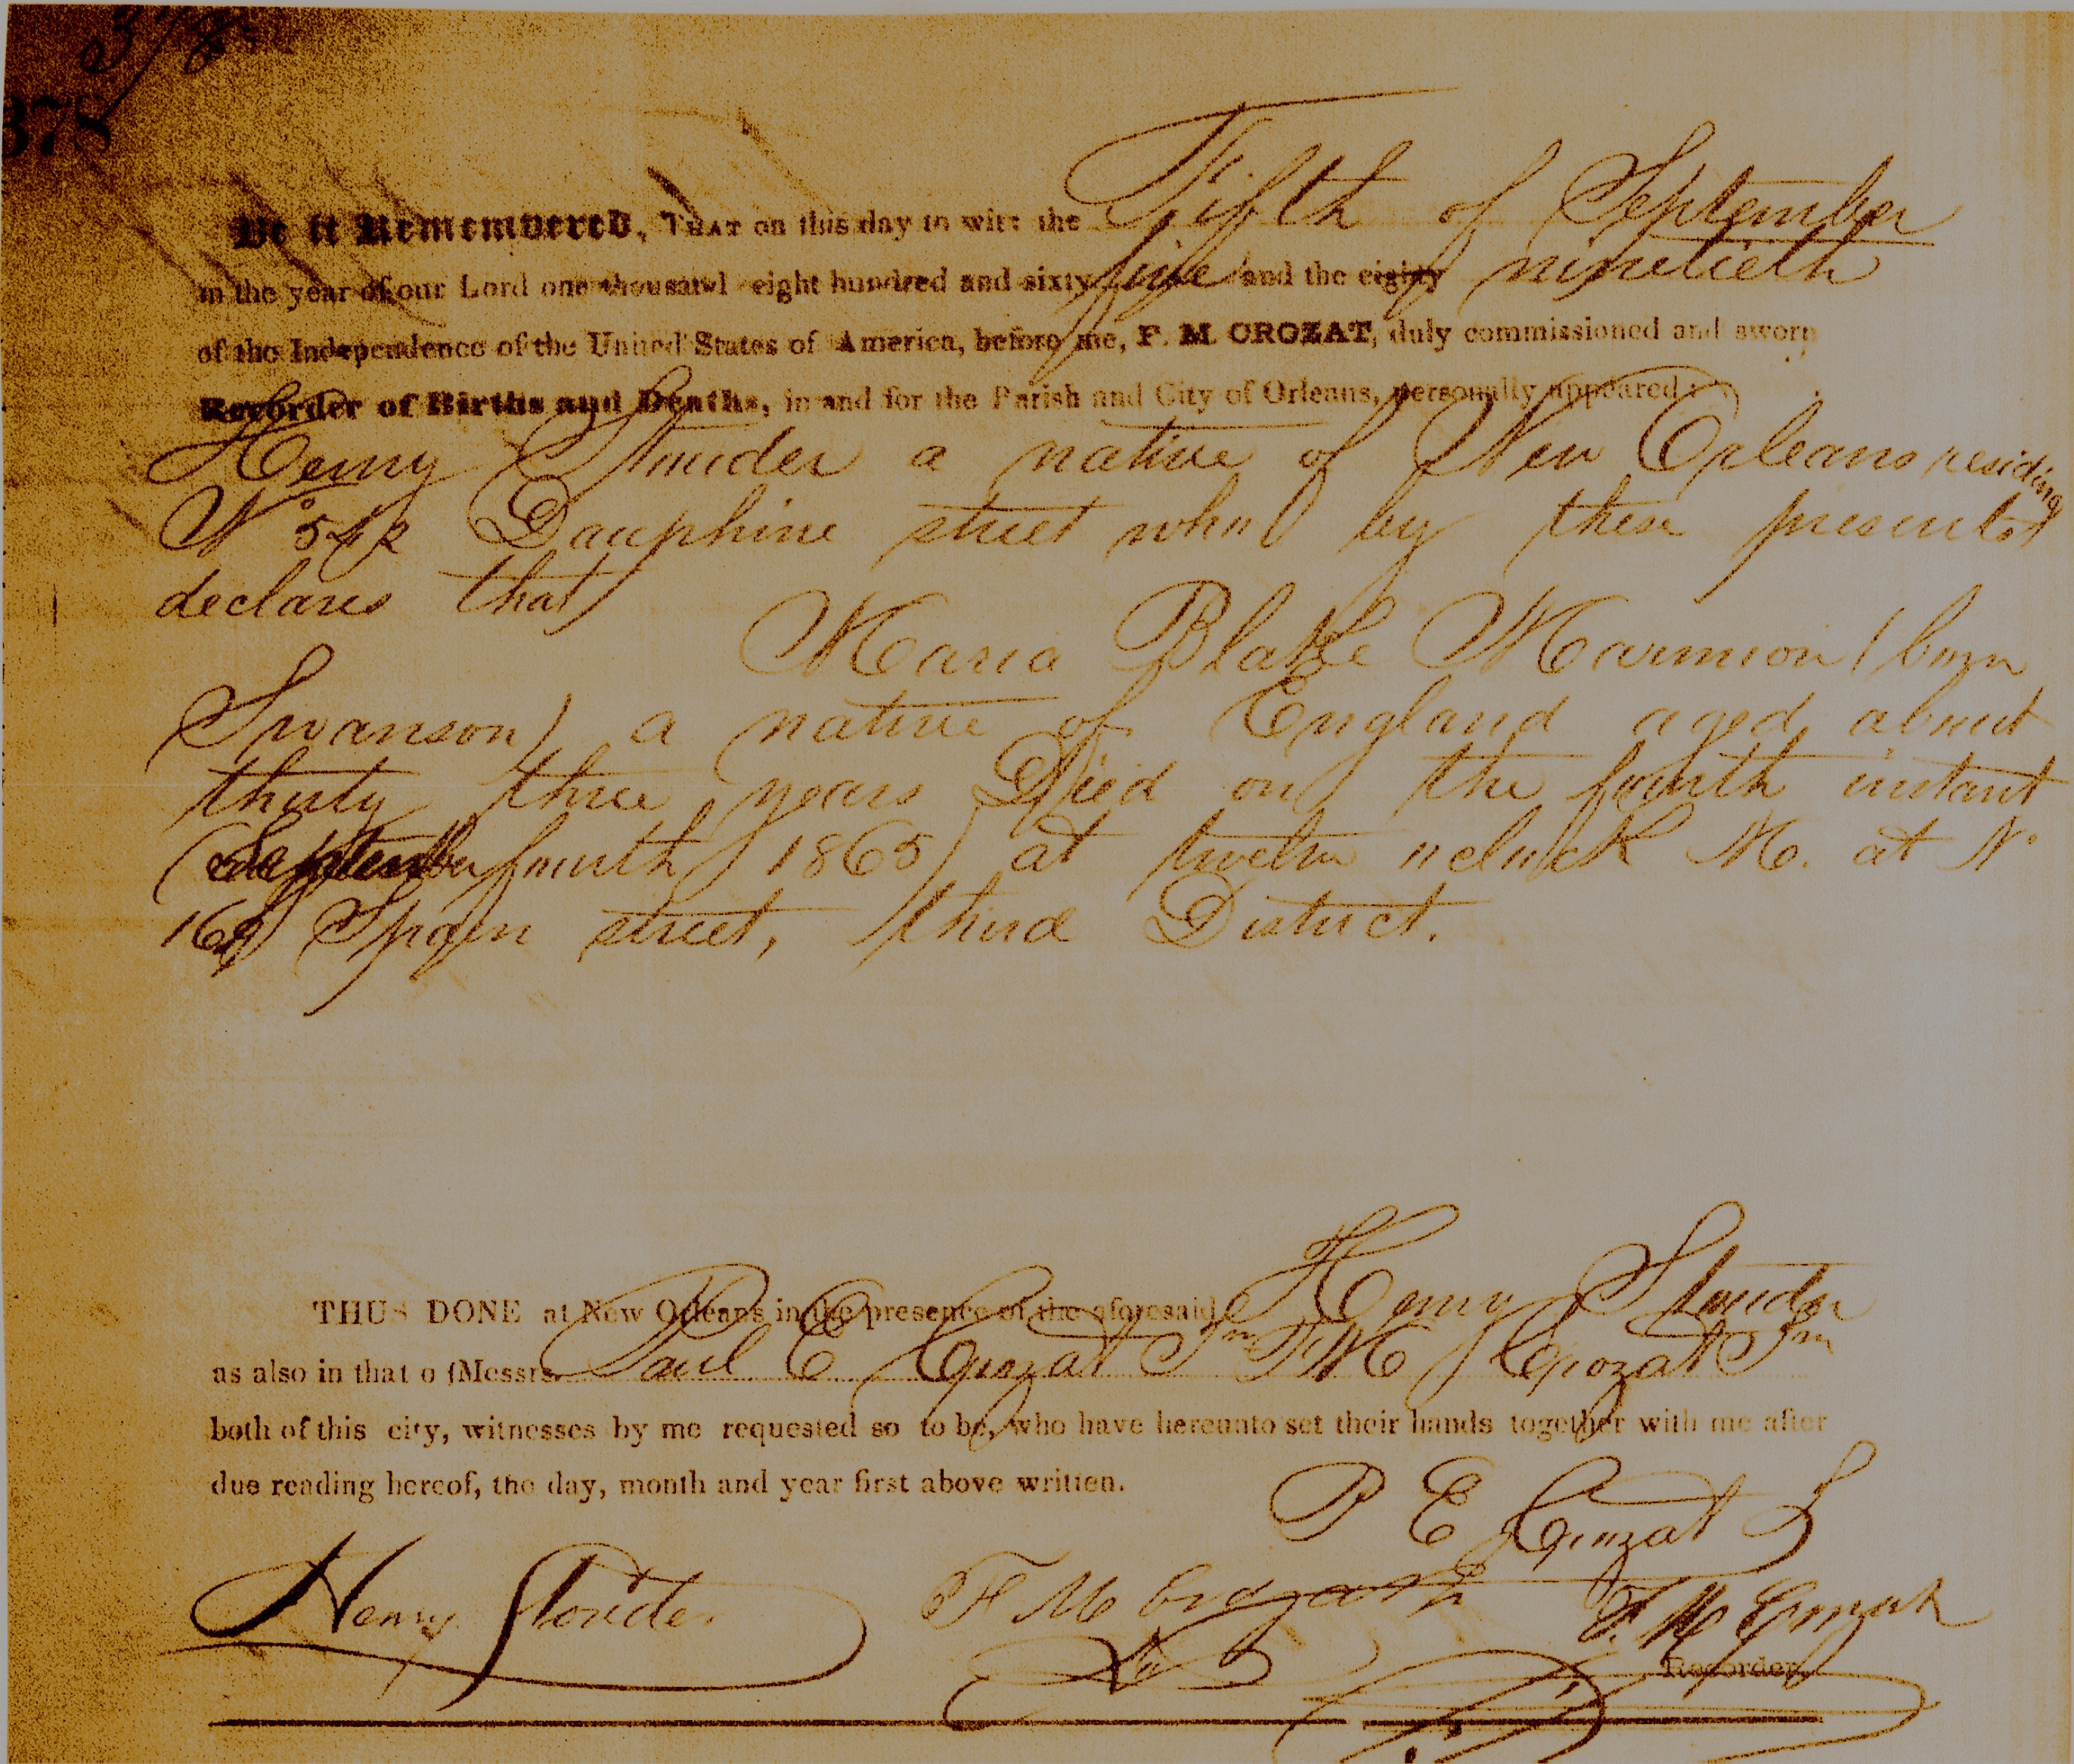 378
378
Be it Remembered, THAT on this day to wit: the Fifth of September
in the year of our Lord one thousand eight hundred and sixty five and the eighty ninetieth
of the Independence of the United States of America, before me, F. M. CROZAT, duly commissioned and sworn
Recorder of Births and Deaths, in and for the Parish and City of Orleans, personally appeared:
Henry Stouder a native of New Orleans residing
No 542 Dauphine street who by these presents
declares that
Maria Blake Marmion (born
Swanson) a native of England aged about
thirty three years Died on the fourth instant
(September fourth 1865) at twelve oclock M. at No
Spain street, third District.
THUS DONE at New Orleans in the presence of the aforesaid Henry Stouder
as also in that of Messrs. Paul E Crozat Jnr F M Crozat Jnr
both of this city, witnesses by me requested so to be, who have hereunto set their hands together with me after
due reading hereof, the day, month and year first above written.
P E Crozat J
Henry Stouder F M Crozat Jr F. M Crozat
Recorder.